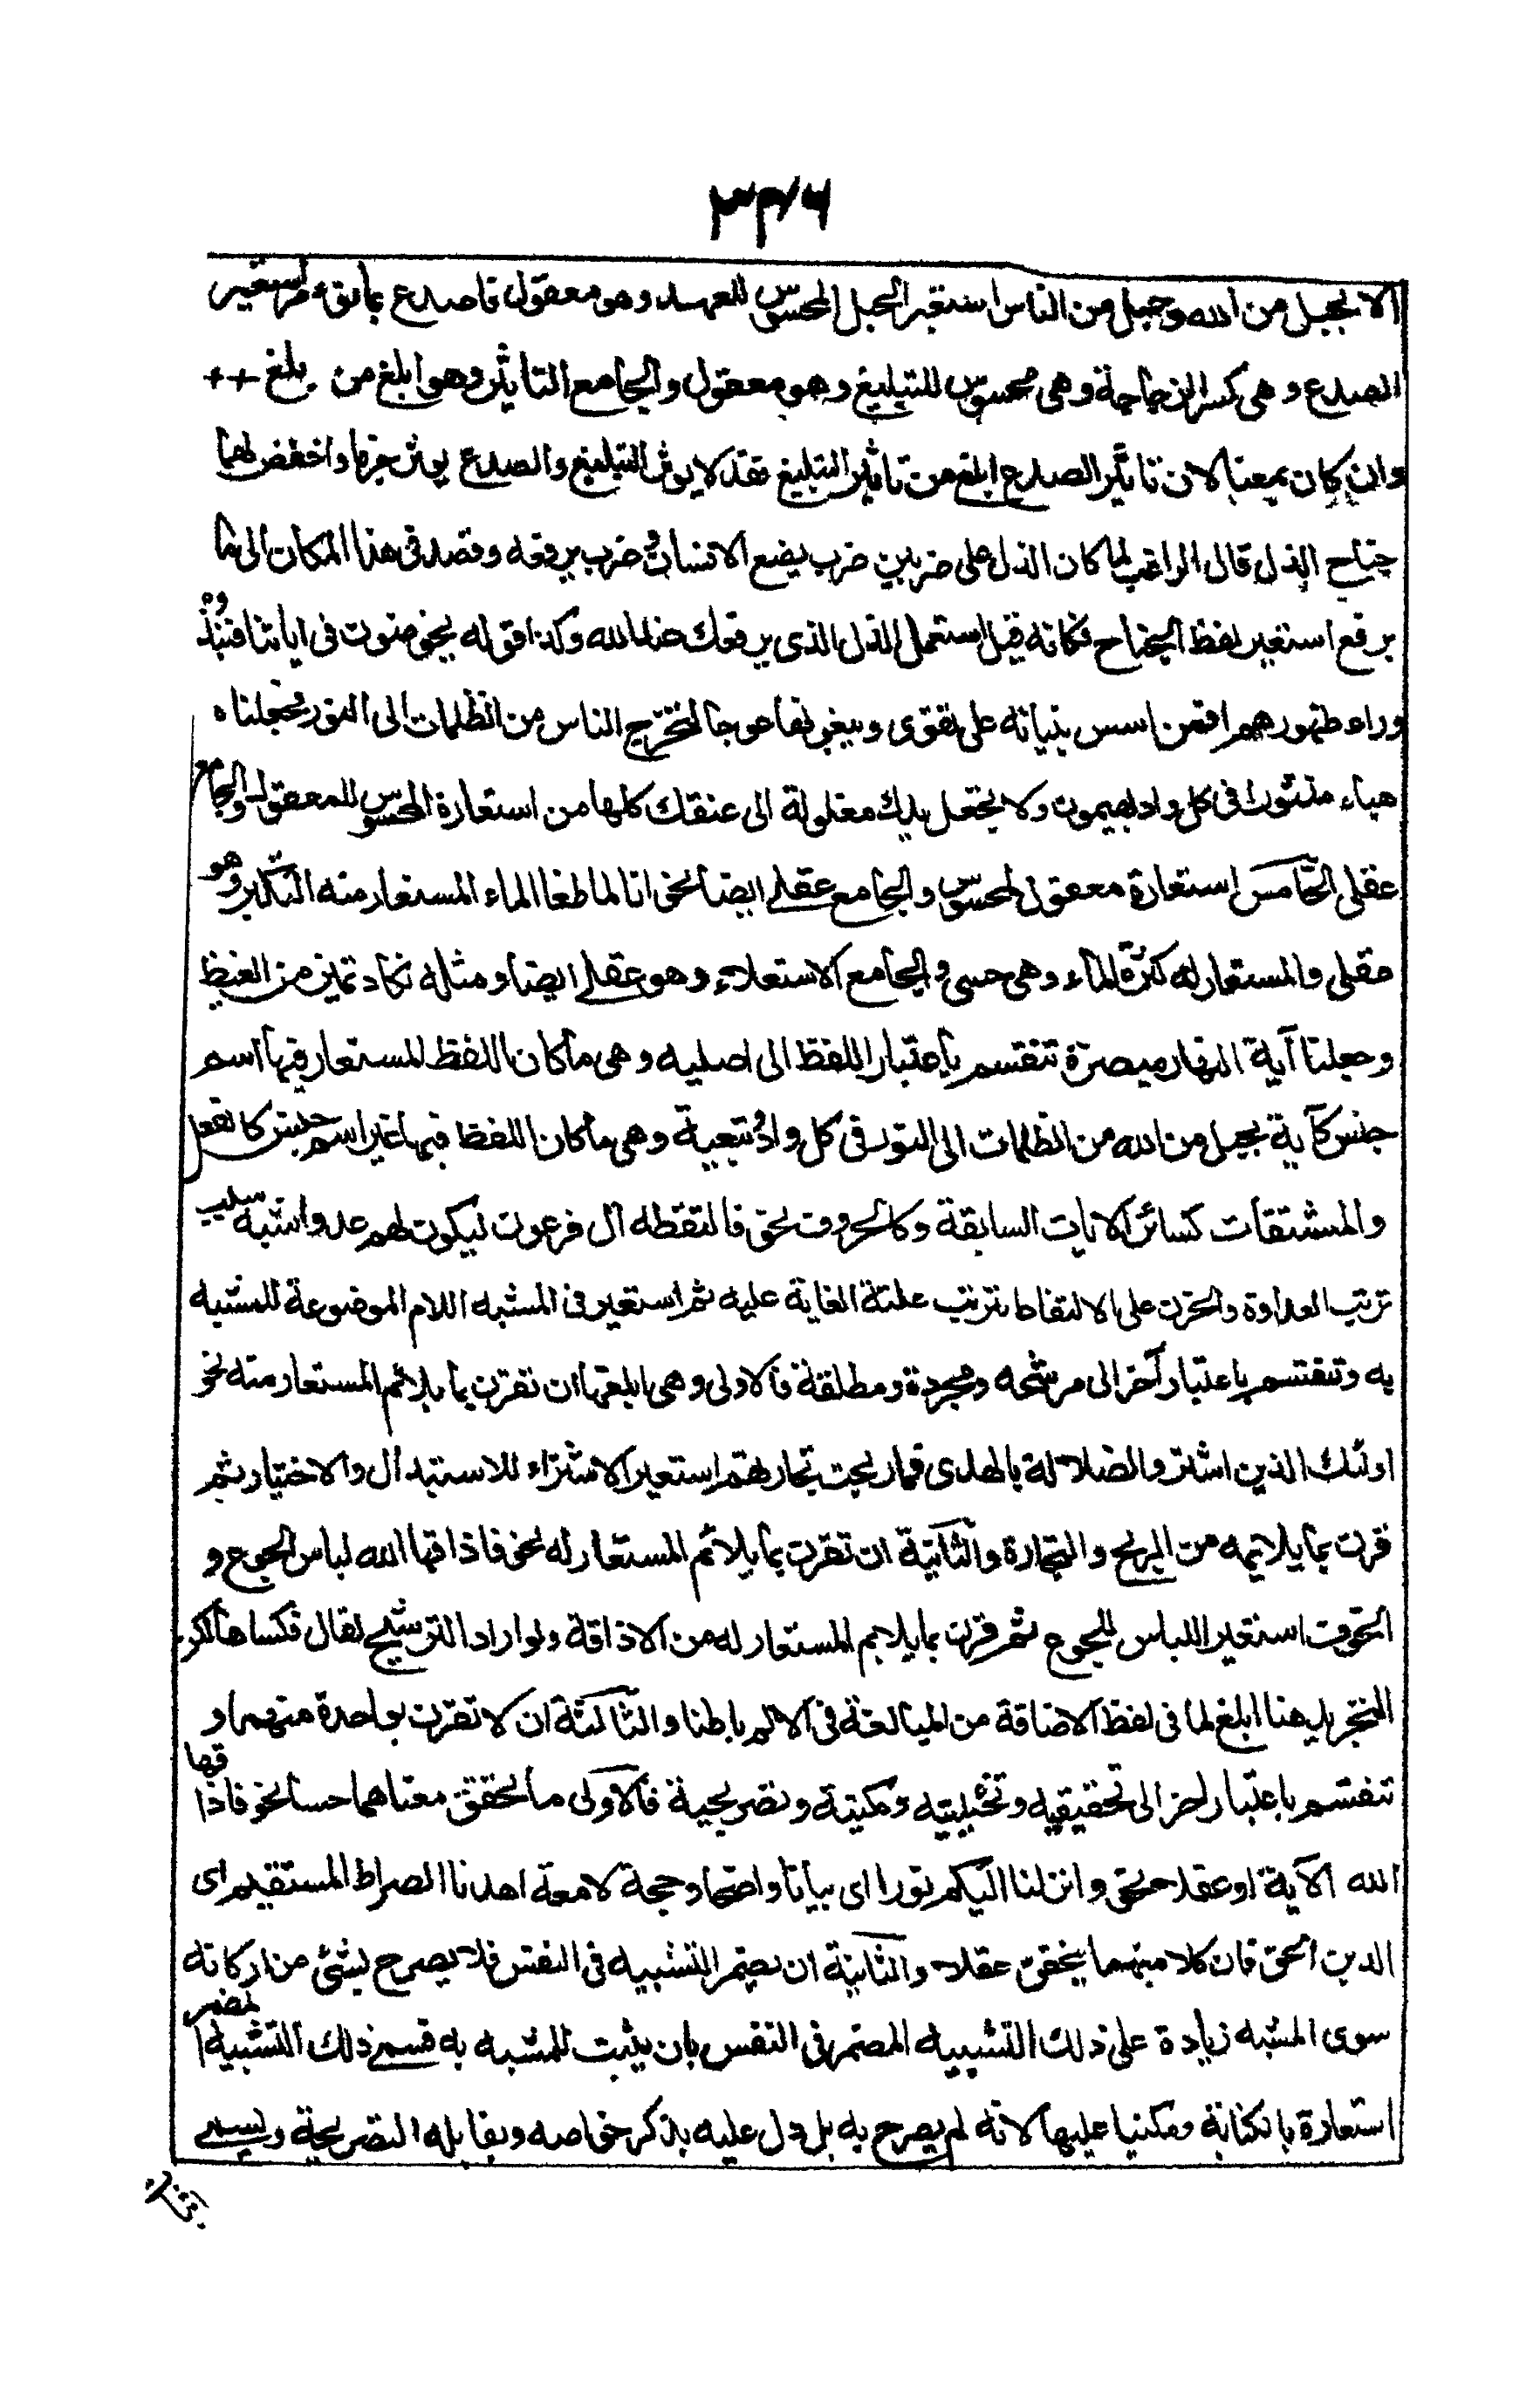 ٣٣٧٦
الا بحبل من الله وحبل من الناس استعير الحبل المحسوس للعهد وهو معقول فاصدع بما تؤمر استعير
الصدع وهى كسر الزجاجة وهى محسوس للتبليغ وهو معقول والجامع التاثير وهو ابلغ من بلغ ++
وان كان بمعناه لان تاثير الصدع ابلغ من تاثير التبليغ فقد لا يوثر التبليغ والصدع يوثر جزما واخفض لهما
جناح الذل قال الراغب لما كان الذل على ضربين ضرب يضع الانسان وضرب يرفعه وقصد فى هذا المكان الى ما
يرفع استعير لفظ الجناح فكانه قيل استعمل الذل الذى يرفعك عند الله وكذا قوله يخوضون فى اياتنا فنبذوه
وراء ظهورهم افمن اسس بنيانه على تقوى ويبغونها عوجا لتخرج الناس من الظلمات الى النور فجعلناه
هباء منثورا فى كل واد يهيمون ولا تجعل يدك مغلولة الى عنقك كلها من استعارة المحسوس للمعقول والجامع
عقلى الخامس استعارة معقول لمحسوس والجامع عقلى ايضا نحو انا لما طغا الماء المستعار منه التكبر وهو
عقلى والمستعار له كثرة الماء وهى حسى والجامع الاستعلاء وهو عقلى ايضا ومثله تكاد تميز من الغيظ
وجعلنا آية النهار مبصرة تنقسم باعتبار اللفظ الى اصليه وهى ما كان اللفظ المستعار فيها اسم
جنس كآية بحبل من الله من الظلمات الى النور فى كل واد وتبعية وهى ما كان اللفظ فيها غير اسم جنس كالفعل
والمشتقات كسائر الايات السابقة وكالحروف نحو فالتقطه آل فرعون ليكون لهم عدوا شبه
ترتب العداوة والحزن على الالتقاط بترتب علته الغاية عليه ثم استعير فى المشبه اللام الموضوعة للمشبه
به وتنقسم باعتبار آخر الى مرشحه ومجردة ومطلقة فالاولى وهى ابلغها ان تقرن بما يلائم المستعار منه نحو
اولئك الذين اشتروا الضلالة بالهدى فما ربحت تجارتهم استعير الاشتراء للاستبدال والاختيار ثم
قرن بما يلايمه من الربح والتجارة والثانية ان تقرن بما يلائم المستعار له نحو فاذاقها الله لباس الجوع و
الخوف استعير اللباس للجوع ثم قرن بما يلايم المستعار له من الاذاقة ولو اراد الترشيح لقال فكساها لكن
التجريد هنا ابلغ لما فى لفظ الاضاقة من المبالغة فى الالم باطنا والثالثة ان لا تقرن بواحدة منهما و
تنقسم باعتبار اخر الى تحقيقيه وتخييليه ومكنيه وتصريحية فالاولى ما تحقق معناهما حسا نحو فاذاقها
الله الآية او عقلا نحو وانزلنا اليكم نورا اى بيانا واضحا وحجة لامعة اهدنا الصراط المستقيم اى
الدين الحق فان كلا منهما يتحقق عقلا والثانية ان يضمر التشبيه فى النفس فلا يصرح بشئ من اركانه
سوى المشبه زيادة على ذلك التشبيه المضمر فى النفس بان يثبت للمشبه به قسمى ذلك التشبيه المضمر
استعارة بالكناية ومكنيا عليها لانه لم يصرح به بل دل عليه بذكر خواصه ويقابله التصريحة ويسمى